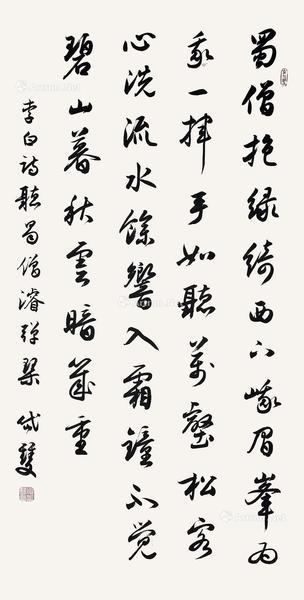 蜀僧抱綠綺西下峨眉峯为
我一揮手如聽萬壑松客
心洗流水餘響入霜鐘不觉
碧山暮秋雲暗幾重
李白詩聽蜀僧濬彈琴